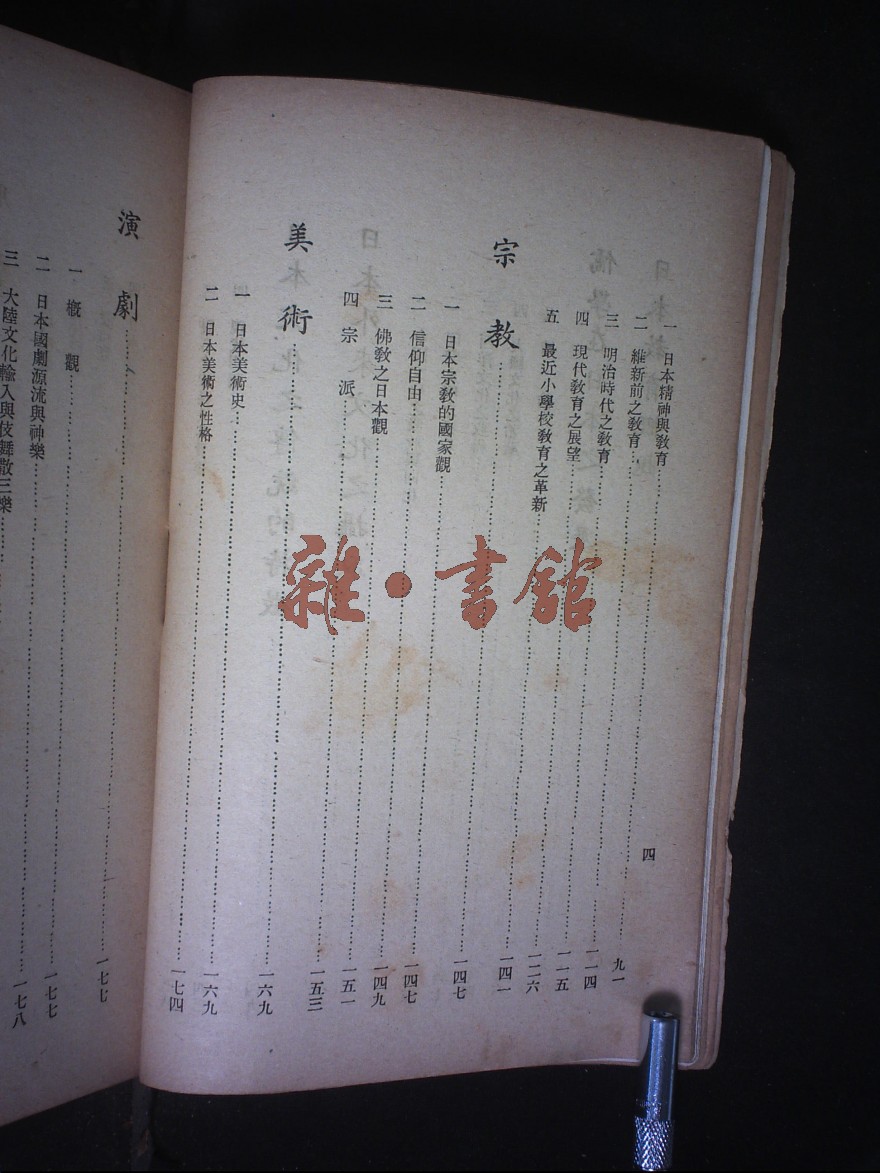 四
一 日本精神與教育……九一
二 維新前之教育……一一四
三 明治時代之教育……一一五
四 現代教育之展望……一二六
五 最近小學校教育之革新……一四一
宗教……一四七
一 日本宗教的國家觀……一四七
二 信仰自由……一四九
三 佛教之日本觀……一五一
四 宗派……一五三
美術……一六九
一 日本美術史……一六九
二 日本美術之性格……一七四
演劇……一七七
一 概觀……一七七
二 日本國劇源流與神樂……一七八
三 大陸文化輸入與伎舞散三樂……
雜·書館